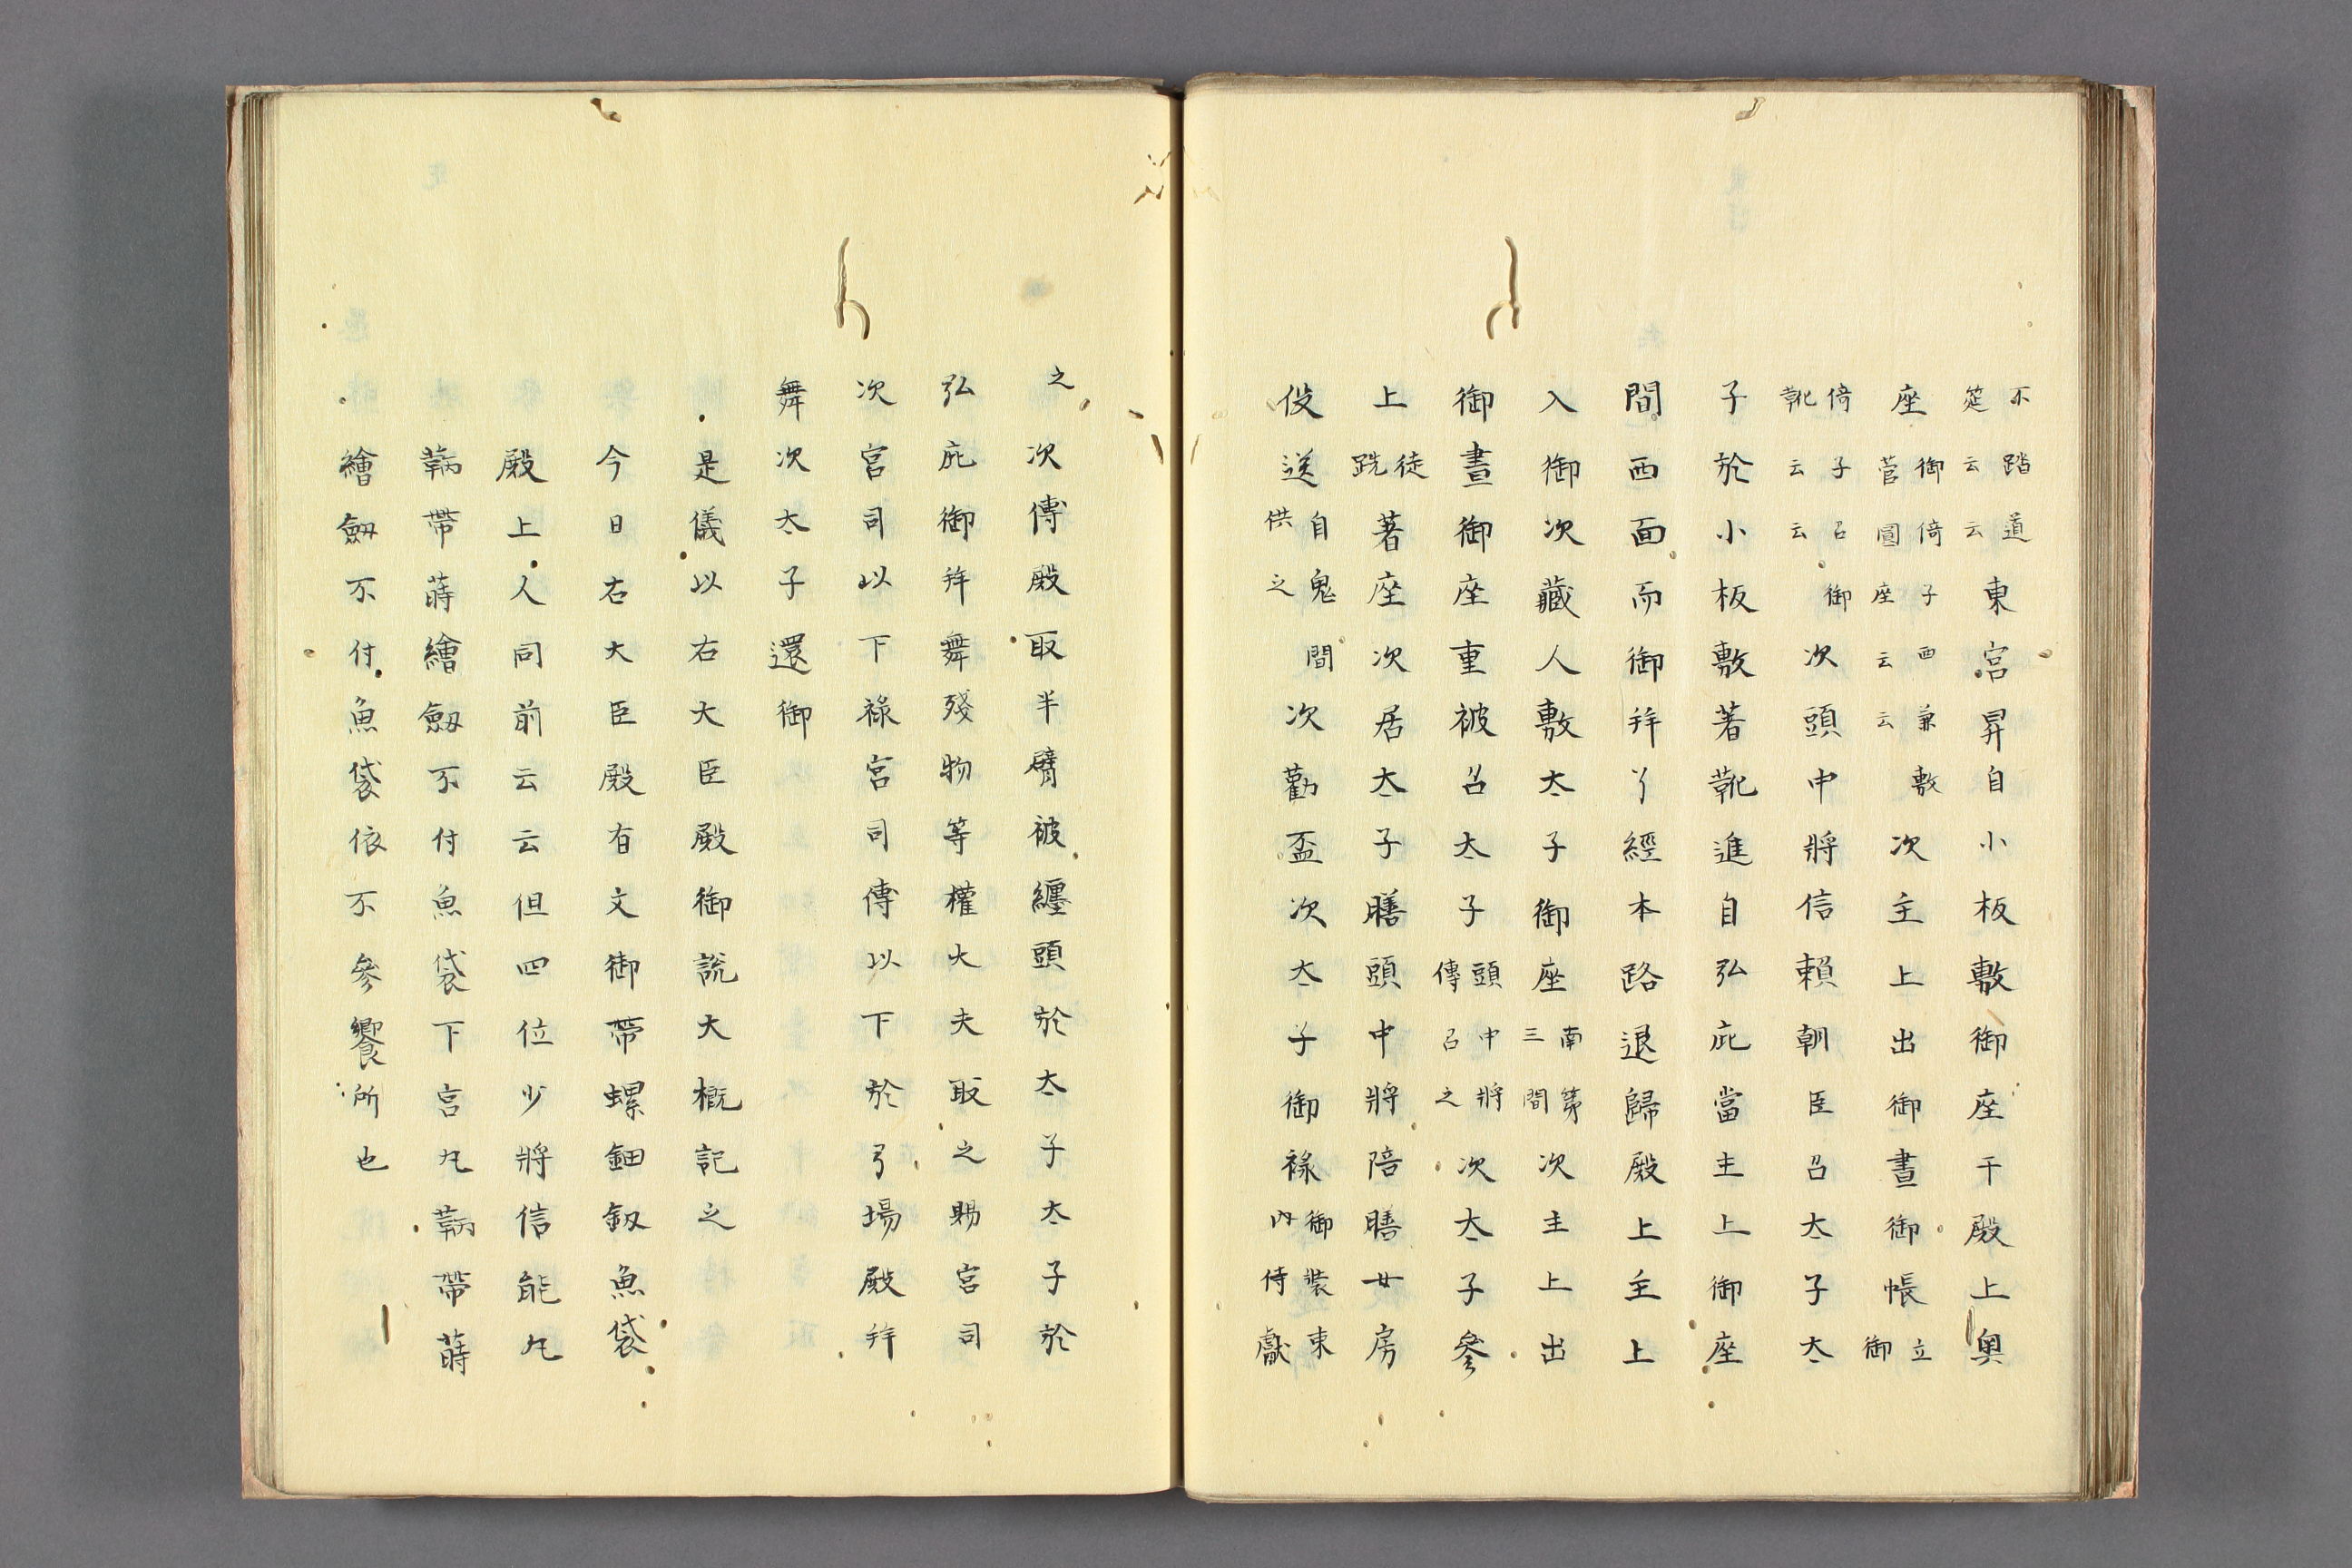 不踏道筵云云東宮昇自小板敷御座干殿上奥
座御倚子西兼敷菅圓座云云次主上出御晝御帳立御
倚子召御靴云云次頭中將信賴朝臣召太子太
子於小板敷著靴進自弘庇當主上御座
間西面而御拜了經本路退歸殿上主上
入御次藏人敷太子御座南第三間次主上出
御晝御座重被召太子頭中將傳召之次太子參
上徒跣著座次居太子膳頭中將陪膳女房
伇送自鬼間供之次勸盃次太子御祿御裝束內侍獻
之次傳殿取半臂被纏頭於太子太子於
弘庇御拜舞殘物等權大夫取之賜宮司
次宮司以下祿宮司傳以下於弓場殿拜
舞次太子還御
是儀以右大臣殿御說大概記之
今日右大臣殿有文御帶螺鈿釼魚袋
殿上人同前云云但四位少將信能丸
鞆帶蒔繪劔不付魚袋下宮丸鞆帶蒔
繪劔不付魚袋依不參饗所也